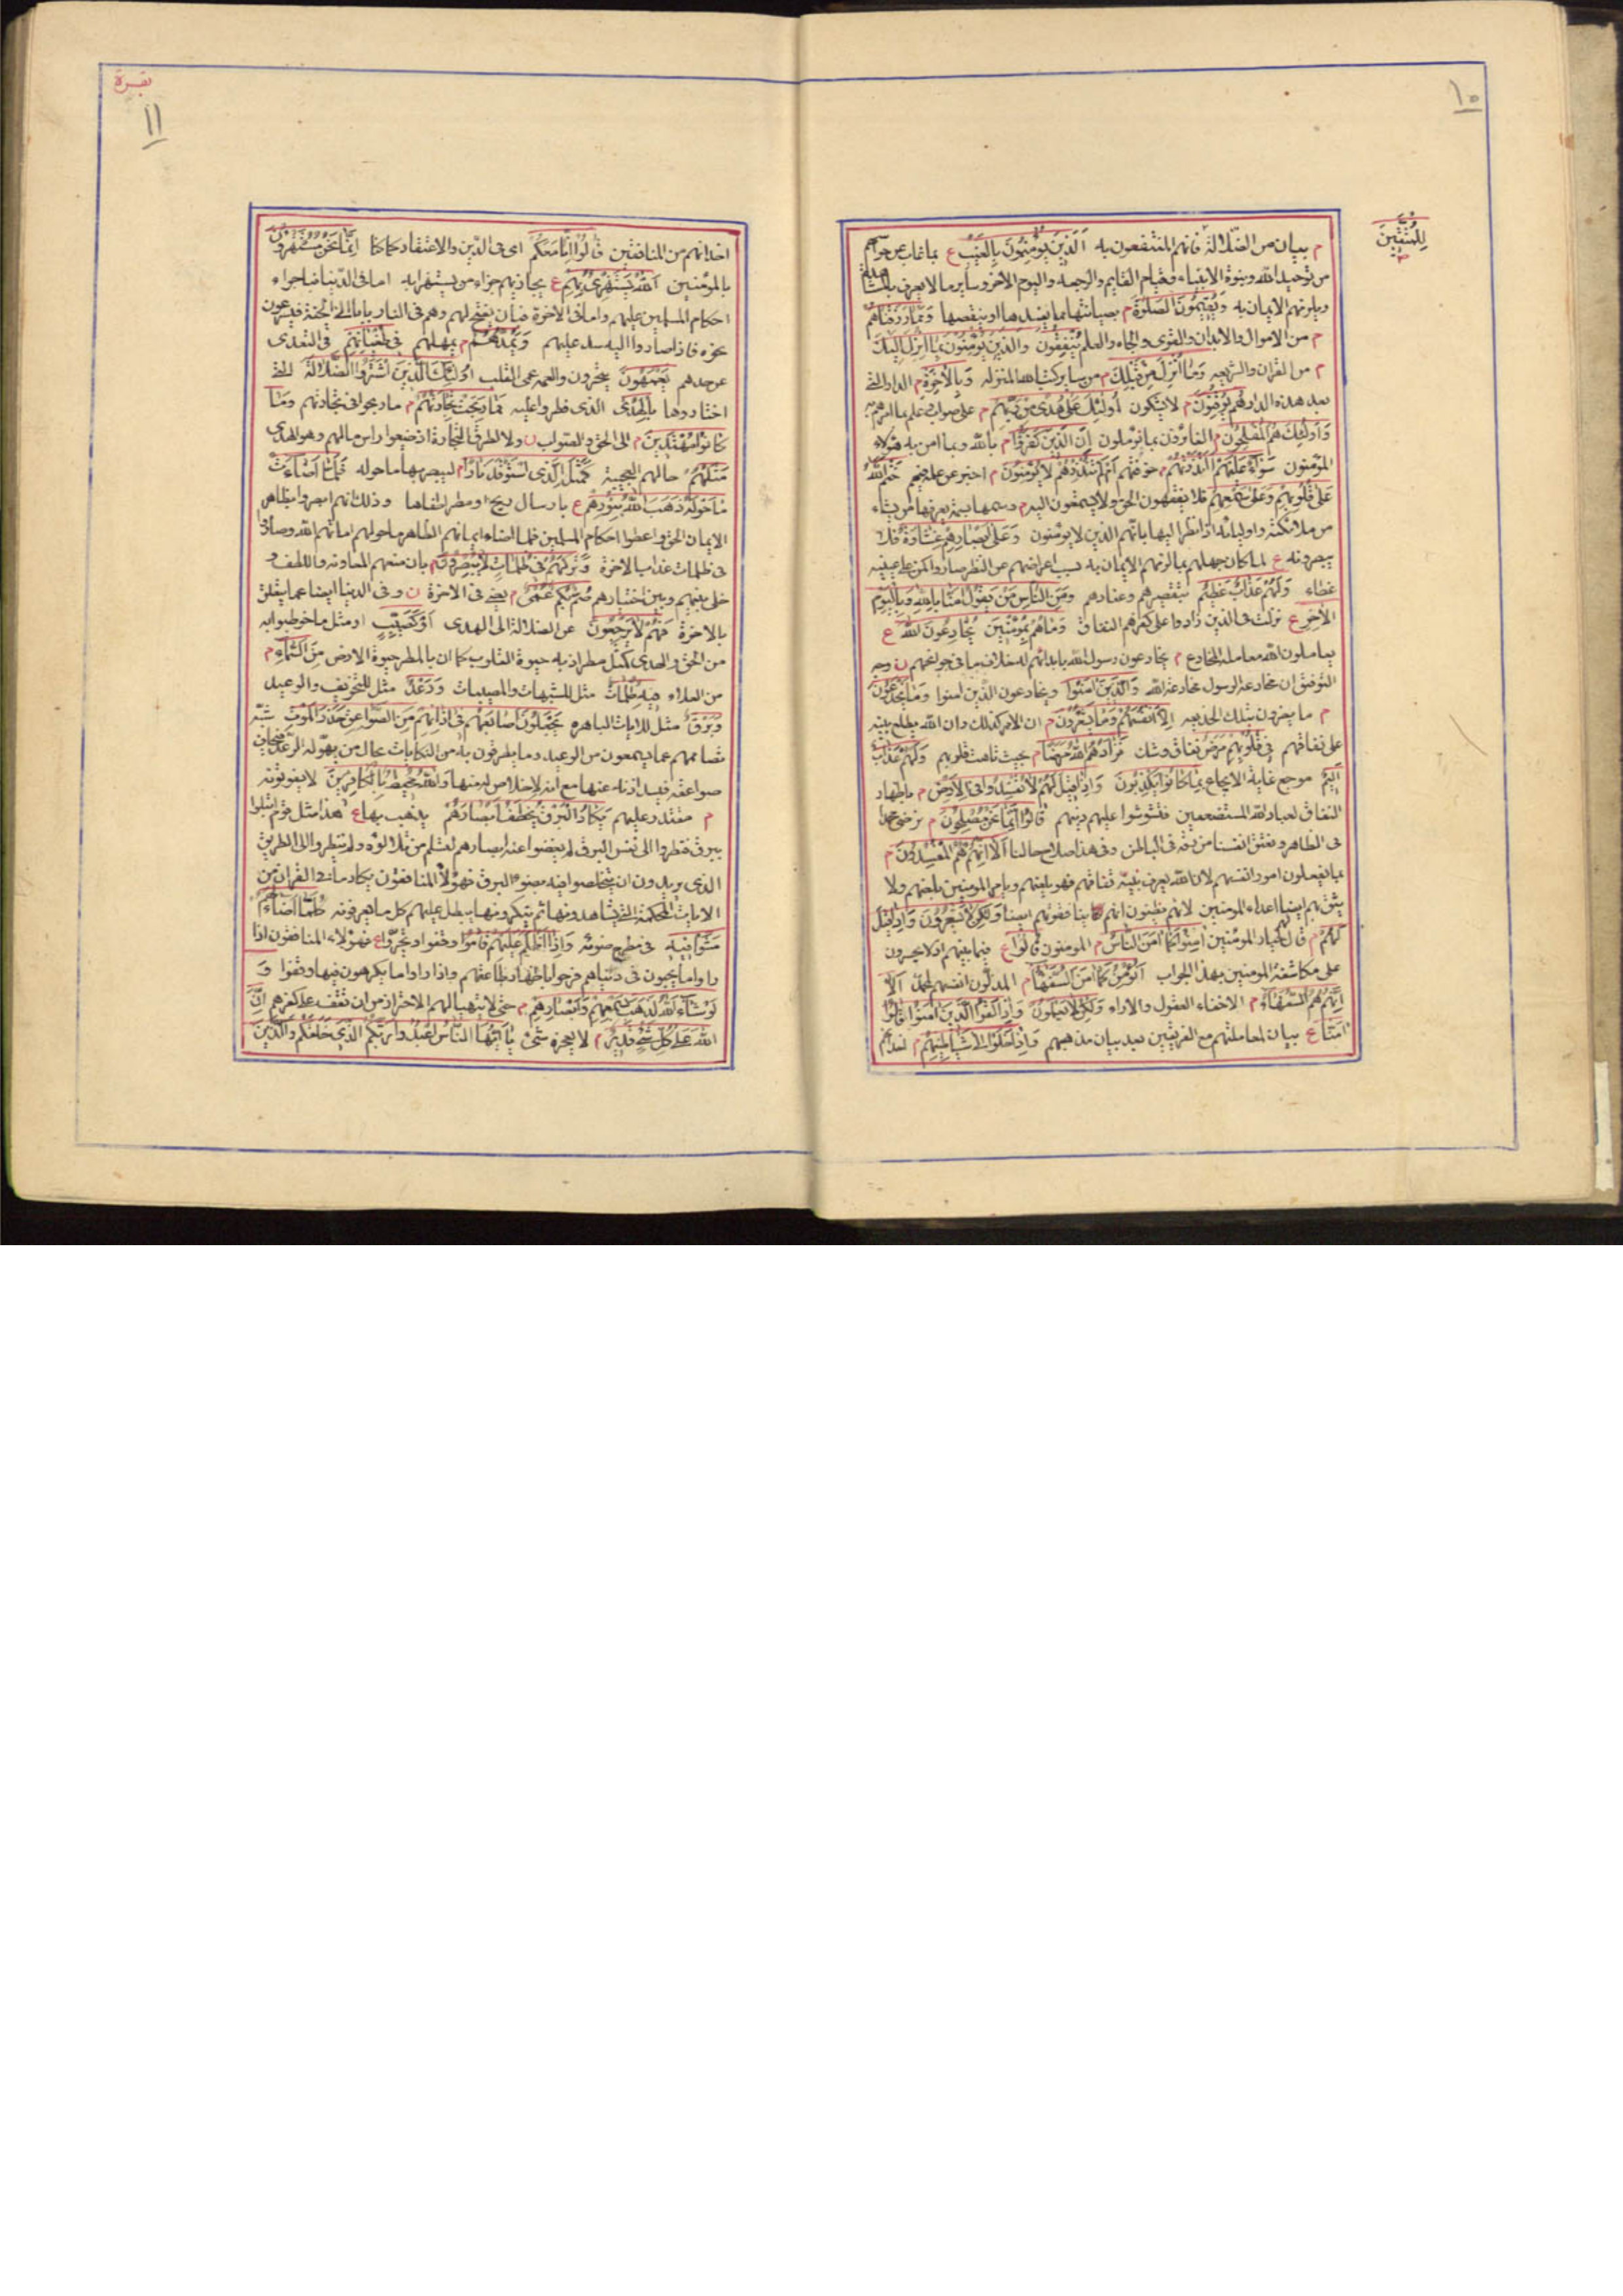 ١٠
لِلْمُتَّقِينَ
م بيان من الضلالة فانهم المنتفعون به اَلَّذِينَ يُؤْمِنُونَ بِالْغَيْبِ ع بما غاب عن حواسهم
من توحيد الله ونبوة الانبياء وقيام القايم والرجعة واليوم الآخر وساير ما لا يعرف بالمشاهدة
ويلزمهم الايمان به وَيُقِيمُونَ الصَّلٰوةَ م بصيانتها مما يفسدها او ينقصها وَمِمَّا رَزَقْنَاهُمْ
م من الاموال والابدان والقوى والجاه والعلم يُنْفِقُونَ وَالَّذِينَ يُؤْمِنُونَ بِمَا اُنْزِلَ اِلَيْكَ
م من القران والشريعه وَمَا اُنْزِلَ مِنْ قَبْلِكَ م من ساير كتب الله المنزله وَبِالْاٰخِرَةِ م الدار التى
بعد هذه الدار هُمْ يُوقِنُونَ م لا يشكون اُولٰئِكَ عَلٰى هُدًى مِنْ رَبِّهِمْ م على صواب وعلم بما امرهم به
وَاُولٰئِكَ هُمُ الْمُفْلِحُونَ م الفائزون بما يؤملون اِنَّ الَّذِينَ كَفَرُوا م بالله وبما امن به هؤلاء
المؤمنون سَوَاءٌ عَلَيْهِمْ ءَاَنْذَرْتَهُمْ م خوفتهم اَمْ لَمْ تُنْذِرْهُمْ لَا يُؤْمِنُونَ م اخبر عن علمه فيهم خَتَمَ اللّٰهُ
عَلٰى قُلُوبِهِمْ وَعَلٰى سَمْعِهِمْ فلا يفقهون الحق ولا يسمعون اليه م وسمها بسمة يعرفها من يشاء
من ملائكته واوليائه اذا نظر اليها بانهم الذين لا يؤمنون وَعَلٰى اَبْصَارِهِمْ غِشَاوَةٌ فلا
يبصرونه ع لما كان جهلهم بما لزمهم الايمان به بسبب اعراضهم عن النظر صاروا كمن على عينيه
غطاء وَلَهُمْ عَذَابٌ عَظِيمٌ بتقصيرهم وعنادهم وَمِنَ النَّاسِ مَنْ يَقُولُ اٰمَنَّا بِاللّٰهِ وَبِالْيَوْمِ
الْاٰخِرِ ع نزلت فى الذين زادوا على كفرهم النفاق وَمَا هُمْ بِمُؤْمِنِينَ يُخَادِعُونَ اللّٰهَ ع
يعاملون الله معاملة المخادع م يخادعون رسول الله بابدائهم له خلاف ما فى جوانحهم ن وجه
التوفيق ان مخادعة الرسول مخادعة الله وَالَّذِينَ اٰمَنُوا ويخادعون الذين امنوا وَمَا يَخْدَعُونَ
م ما يضرون بتلك الخديعه اِلَّا اَنْفُسَهُمْ وَمَا يَشْعُرُونَ م ان الامر كذلك وان الله يطلع نبيه
على نفاقهم فِى قُلُوبِهِمْ مَرَضٌ نفاق وشك فَزَادَهُمُ اللّٰهُ مَرَضًا م بحيث تاهت قلوبهم وَلَهُمْ عَذَابٌ
اَلِيمٌ موجع غاية الايجاع بِمَا كَانُوا يَكْذِبُونَ وَاِذَا قِيلَ لَهُمْ لَا تُفْسِدُوا فِى الْاَرْضِ م باظهار
النفاق لعباد الله المستضعفين فتشوشوا عليهم دينهم قَالُوا اِنَّمَا نَحْنُ مُصْلِحُونَ م نرضى محمدا
فى الظاهر ونعتق انفسنا من رقه فى الباطن وفى هذا صلاح حالنا اَلَا اِنَّهُمْ هُمُ الْمُفْسِدُونَ م
بما يفعلون امور انفسهم لان الله يعرف نبيه نفاقهم فهو يلعنهم ويامر المؤمنين بلعنهم ولا
يثق بهم ايضا اعداء المومنين لانهم يظنون انهم ينافقونهم ايضا وَلٰكِنْ لَا يَشْعُرُونَ وَاِذَا قِيلَ
لَهُمْ م قال لهم خيار المؤمنين اٰمِنُوا كَمَا اٰمَنَ النَّاسُ م المومنون قَالُوا ع فيما بينهم اذ لا يجسرون
على مكاشفة المومنين بهذا الجواب اَنُؤْمِنُ كَمَا اٰمَنَ السُّفَهَاءُ م المذلون انفسهم لمحمد اَلَا
اِنَّهُمْ هُمُ السُّفَهَاءُ م الاخفاء العقول والاراء وَلٰكِنْ لَا يَعْلَمُونَ وَاِذَا لَقُوا الَّذِينَ اٰمَنُوا قَالُوا
اٰمَنَّا ع بيان لمعاملتهم مع الفريقين بعد بيان مذهبهم وَاِذَا خَلَوْا اِلٰى شَيَاطِينِهِمْ م اخدانهم
بقرة
١١
اخدانهم من المنافقين قَالُوا اِنَّا مَعَكُمْ اى فى الدين والاعتقاد كما كنا اِنَّمَا نَحْنُ مُسْتَهْزِؤُنَ
بالمؤمنين اَللّٰهُ يَسْتَهْزِئُ بِهِمْ ع يجازيهم جزاء من يستهزأ به اما فى الدنيا فباجراء
احكام المسلمين عليهم واما فى الاخرة فبان يفتح لهم وهم فى النار بابا الى الجنة فيسرعون
نحوه فاذا صاروا اليه سد عليهم وَيَمُدُّهُمْ م يمهلهم فِى طُغْيَانِهِمْ فى التعدى
عن حدهم يَعْمَهُونَ يتحيرون والعمه عمى القلب اُولٰئِكَ الَّذِينَ اشْتَرَوُا الضَّلَالَةَ التى
اختاروها بِالْهُدٰى الذى فطروا عليه فَمَا رَبِحَتْ تِجَارَتُهُمْ م ما ربحوا فى تجارتهم وَمَا
كَانُوا مُهْتَدِينَ م الى الحق والصواب ن ولا لطرق التجارة اذ ضيعوا راس مالهم وهو الهدى
مَثَلُهُمْ حالهم العجيبة كَمَثَلِ الَّذِى اسْتَوْقَدَ نَارًا م ليبصر بها ما حوله فَلَمَّا اَضَاءَتْ
مَا حَوْلَهُ ذَهَبَ اللّٰهُ بِنُورِهِمْ ع بارسال ريح او مطر اطفاها وذلك انهم ابصروا بظاهر
الايمان الحق واعطوا احكام المسلمين فلما اضاء ايمانهم الظاهر ما حولهم اماتهم الله وصاروا
فى ظلمات عذاب الاخرة وَتَرَكَهُمْ فِى ظُلُمَاتٍ لَا يُبْصِرُونَ م بان منعهم المعاونة واللطف و
خلى بينهم وبين اختيارهم صُمٌّ بُكْمٌ عُمْىٌ م يعنى فى الاخرة ن وفى الدنيا ايضا عما يتعلق
بالاخرة فَهُمْ لَا يَرْجِعُونَ عن الضلالة الى الهدى اَوْ كَصَيِّبٍ او مثل ما خوطبوا به
من الحق والهدى كمثل مطر اذ به حيوة القلوب كما ان بالمطر حيوة الارض مِنَ السَّمَاءِ م
من العلاء فِيهِ ظُلُمَاتٌ مثل للشبهات والمصيبات وَرَعْدٌ مثل للتخويف والوعيد
وَبَرْقٌ مثل للايات الباهره يَجْعَلُونَ اَصَابِعَهُمْ فِى اٰذَانِهِمْ مِنَ الصَّوَاعِقِ حَذَرَ الْمَوْتِ شبه
تصاممهم عما يسمعون من الوعيد وما يطرقون به من النكايات بحال من يهوله الرعد فيخاف
صواعقه فيسد اذنه عنها مع انه لا خلاص له منها وَاللّٰهُ مُحِيطٌ بِالْكَافِرِينَ لا يفوتونه
م مقتدر عليهم يَكَادُ الْبَرْقُ يَخْطَفُ اَبْصَارَهُمْ يذهب بها ع هذا مثل قوم ابتلوا
ببرق فنظروا الى نفس البرق لم يغضوا عنه ابصارهم لتسلم من تلالؤه ولم ينظروا الى الطريق
الذى يريدون ان يتخلصوا فيه بضوء البرق فهؤلاء المنافقون يكاد ما فى القران من
الايات المحكمة التى يشاهدونها ثم ينكرونها يبطل عليهم كل ما يعرفونه كُلَّمَا اَضَاءَ لَهُمْ
مَشَوْا فِيهِ فى مطرح ضوئه وَاِذَا اَظْلَمَ عَلَيْهِمْ قَامُوا وقفوا وتحيروا ع فهؤلاء المنافقون اذا
راوا ما يحبون فى دنياهم فرحوا باظهار طاعتهم واذا راوا ما يكرهون فيها وقفوا وَ
لَوْ شَاءَ اللّٰهُ لَذَهَبَ بِسَمْعِهِمْ وَاَبْصَارِهِمْ م حتى لا يتهيا لهم الاحتراز من ان تقف على كفرهم اِنَّ
اللّٰهَ عَلٰى كُلِّ شَىْءٍ قَدِيرٌ م لا يعجزه شئ يَا اَيُّهَا النَّاسُ اعْبُدُوا رَبَّكُمُ الَّذِى خَلَقَكُمْ وَالَّذِينَ